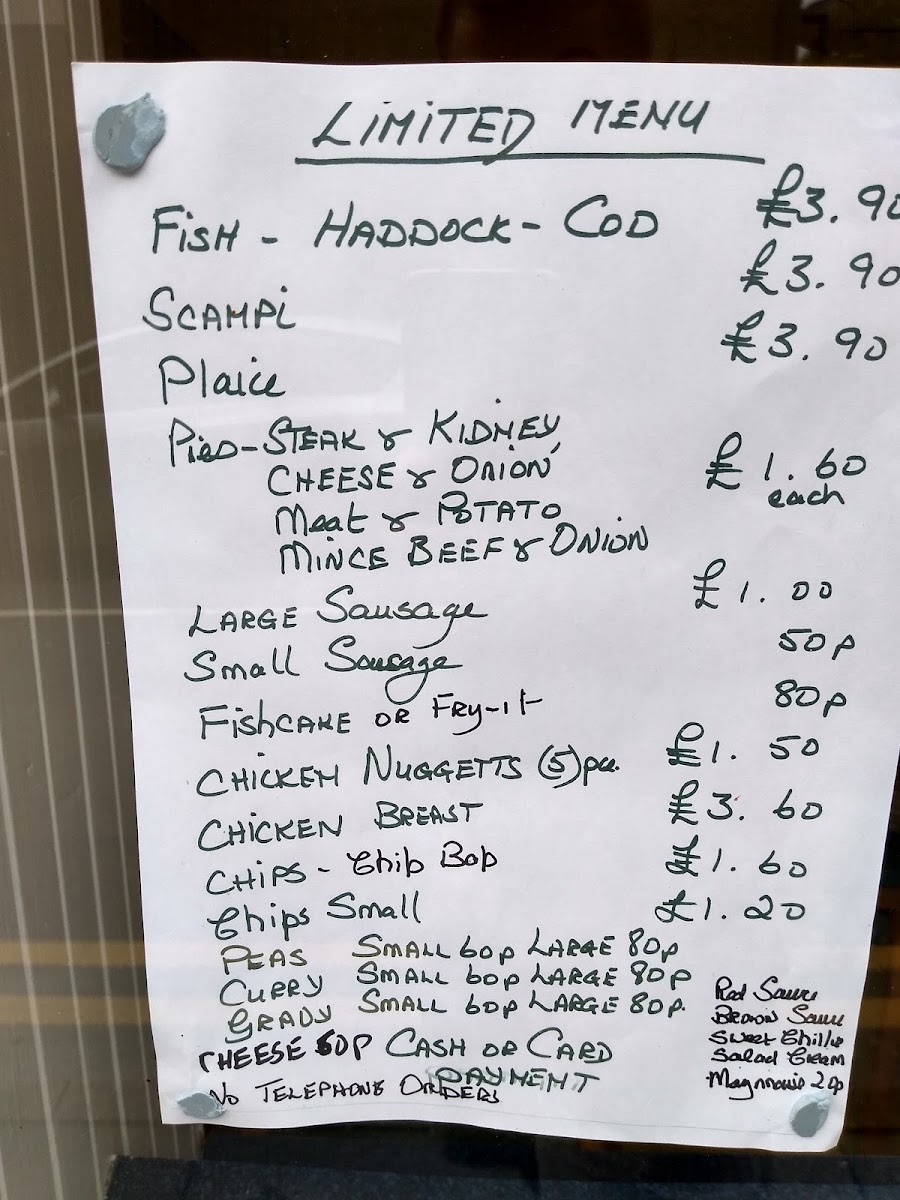 LIMITED MENU
FISH - HADDOCK - COD £3.90
SCAMPI £3.90
Plaice £3.90
PIES - STEAK & KIDNEY
CHEESE & ONION £1.60
Meat & POTATO each
MINCE BEEF & ONION
LARGE Sausage £1.00
Small Sausage 50p
FISHCAKE OR FRY-it 80p
CHICKEN NUGGETTS (5) pce £1.50
CHICKEN BREAST £3.60
CHIPS - Chip Bap £1.60
Chips Small £1.20
PEAS SMALL 60p LARGE 80p
CURRY SMALL 60p LARGE 80p
GRAVY SMALL 60p LARGE 80p.
CHEESE 60P CASH OR CARD
PAYMENT
NO TELEPHONE ORDERS
Red Sauce
Brown Sauce
Sweet Chillie
Salad Cream
20p